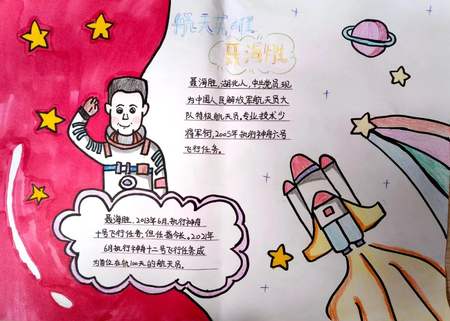 航天英雄
聂海胜
聂海胜,湖北人,中共党员,现
为中国人民解放军航天员大
队特级航天员,专业技术少
将军衔,2005年执行神舟六号
飞行任务。
聂海胜,2013年6月,执行神舟
十号飞行任务,担任指令长。2021年
6月执行神舟十二号飞行任务成
为首位在轨100天的航天员。